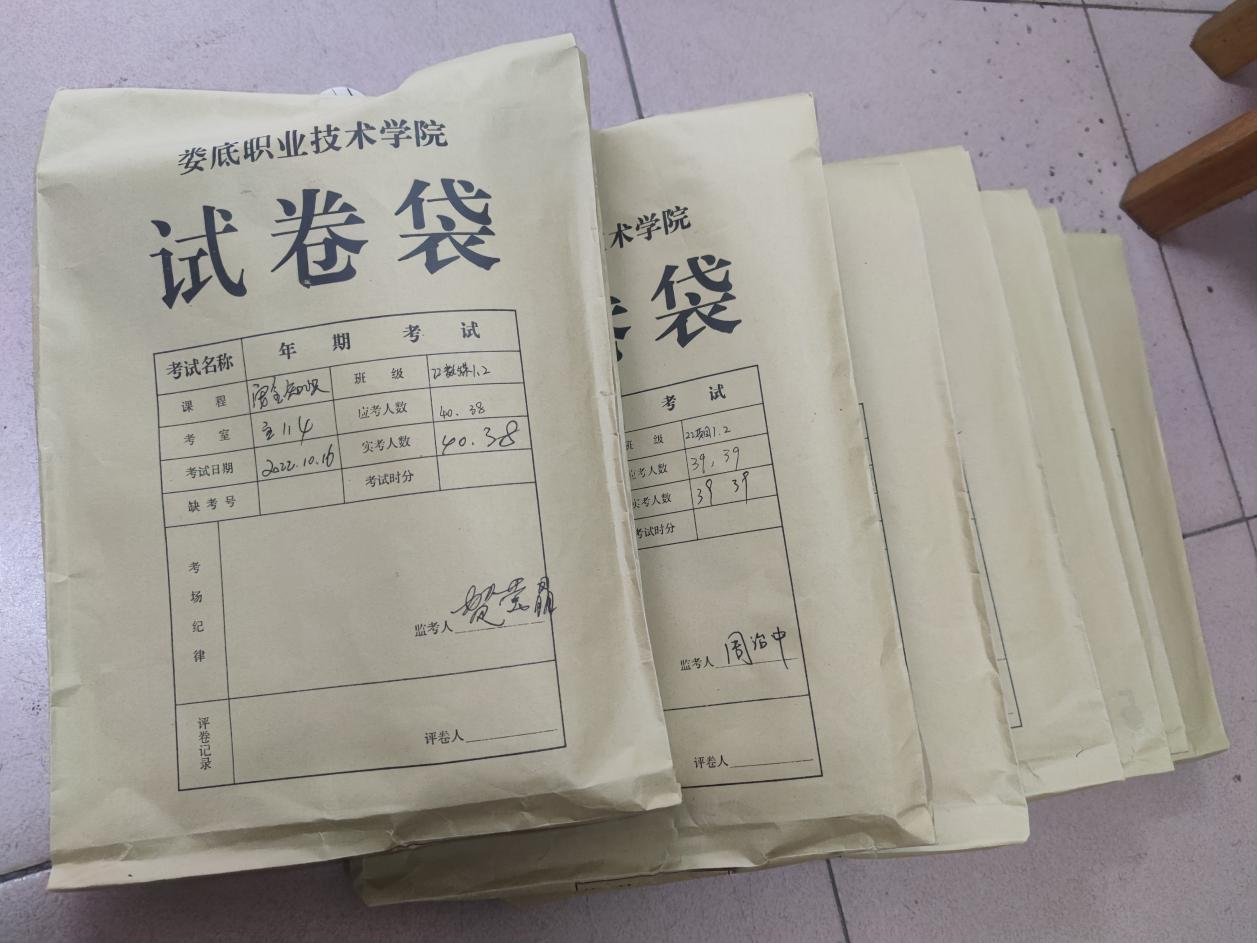 娄底职业技术学院
试卷袋
考试名称 年 期 考 试
课 程 安全知识 班 级 22数媒1.2
考 室 主114 应考人数 40. 38
考试日期 2022.10.16 实考人数 40.38
缺考号 考试时分
考场纪律
监考人
评卷记录
评卷人
术学院
袋
考 试
级 22项目1.2
考人数 39, 39
考人数 39 39
考试时分
监考人 周治中
评卷人